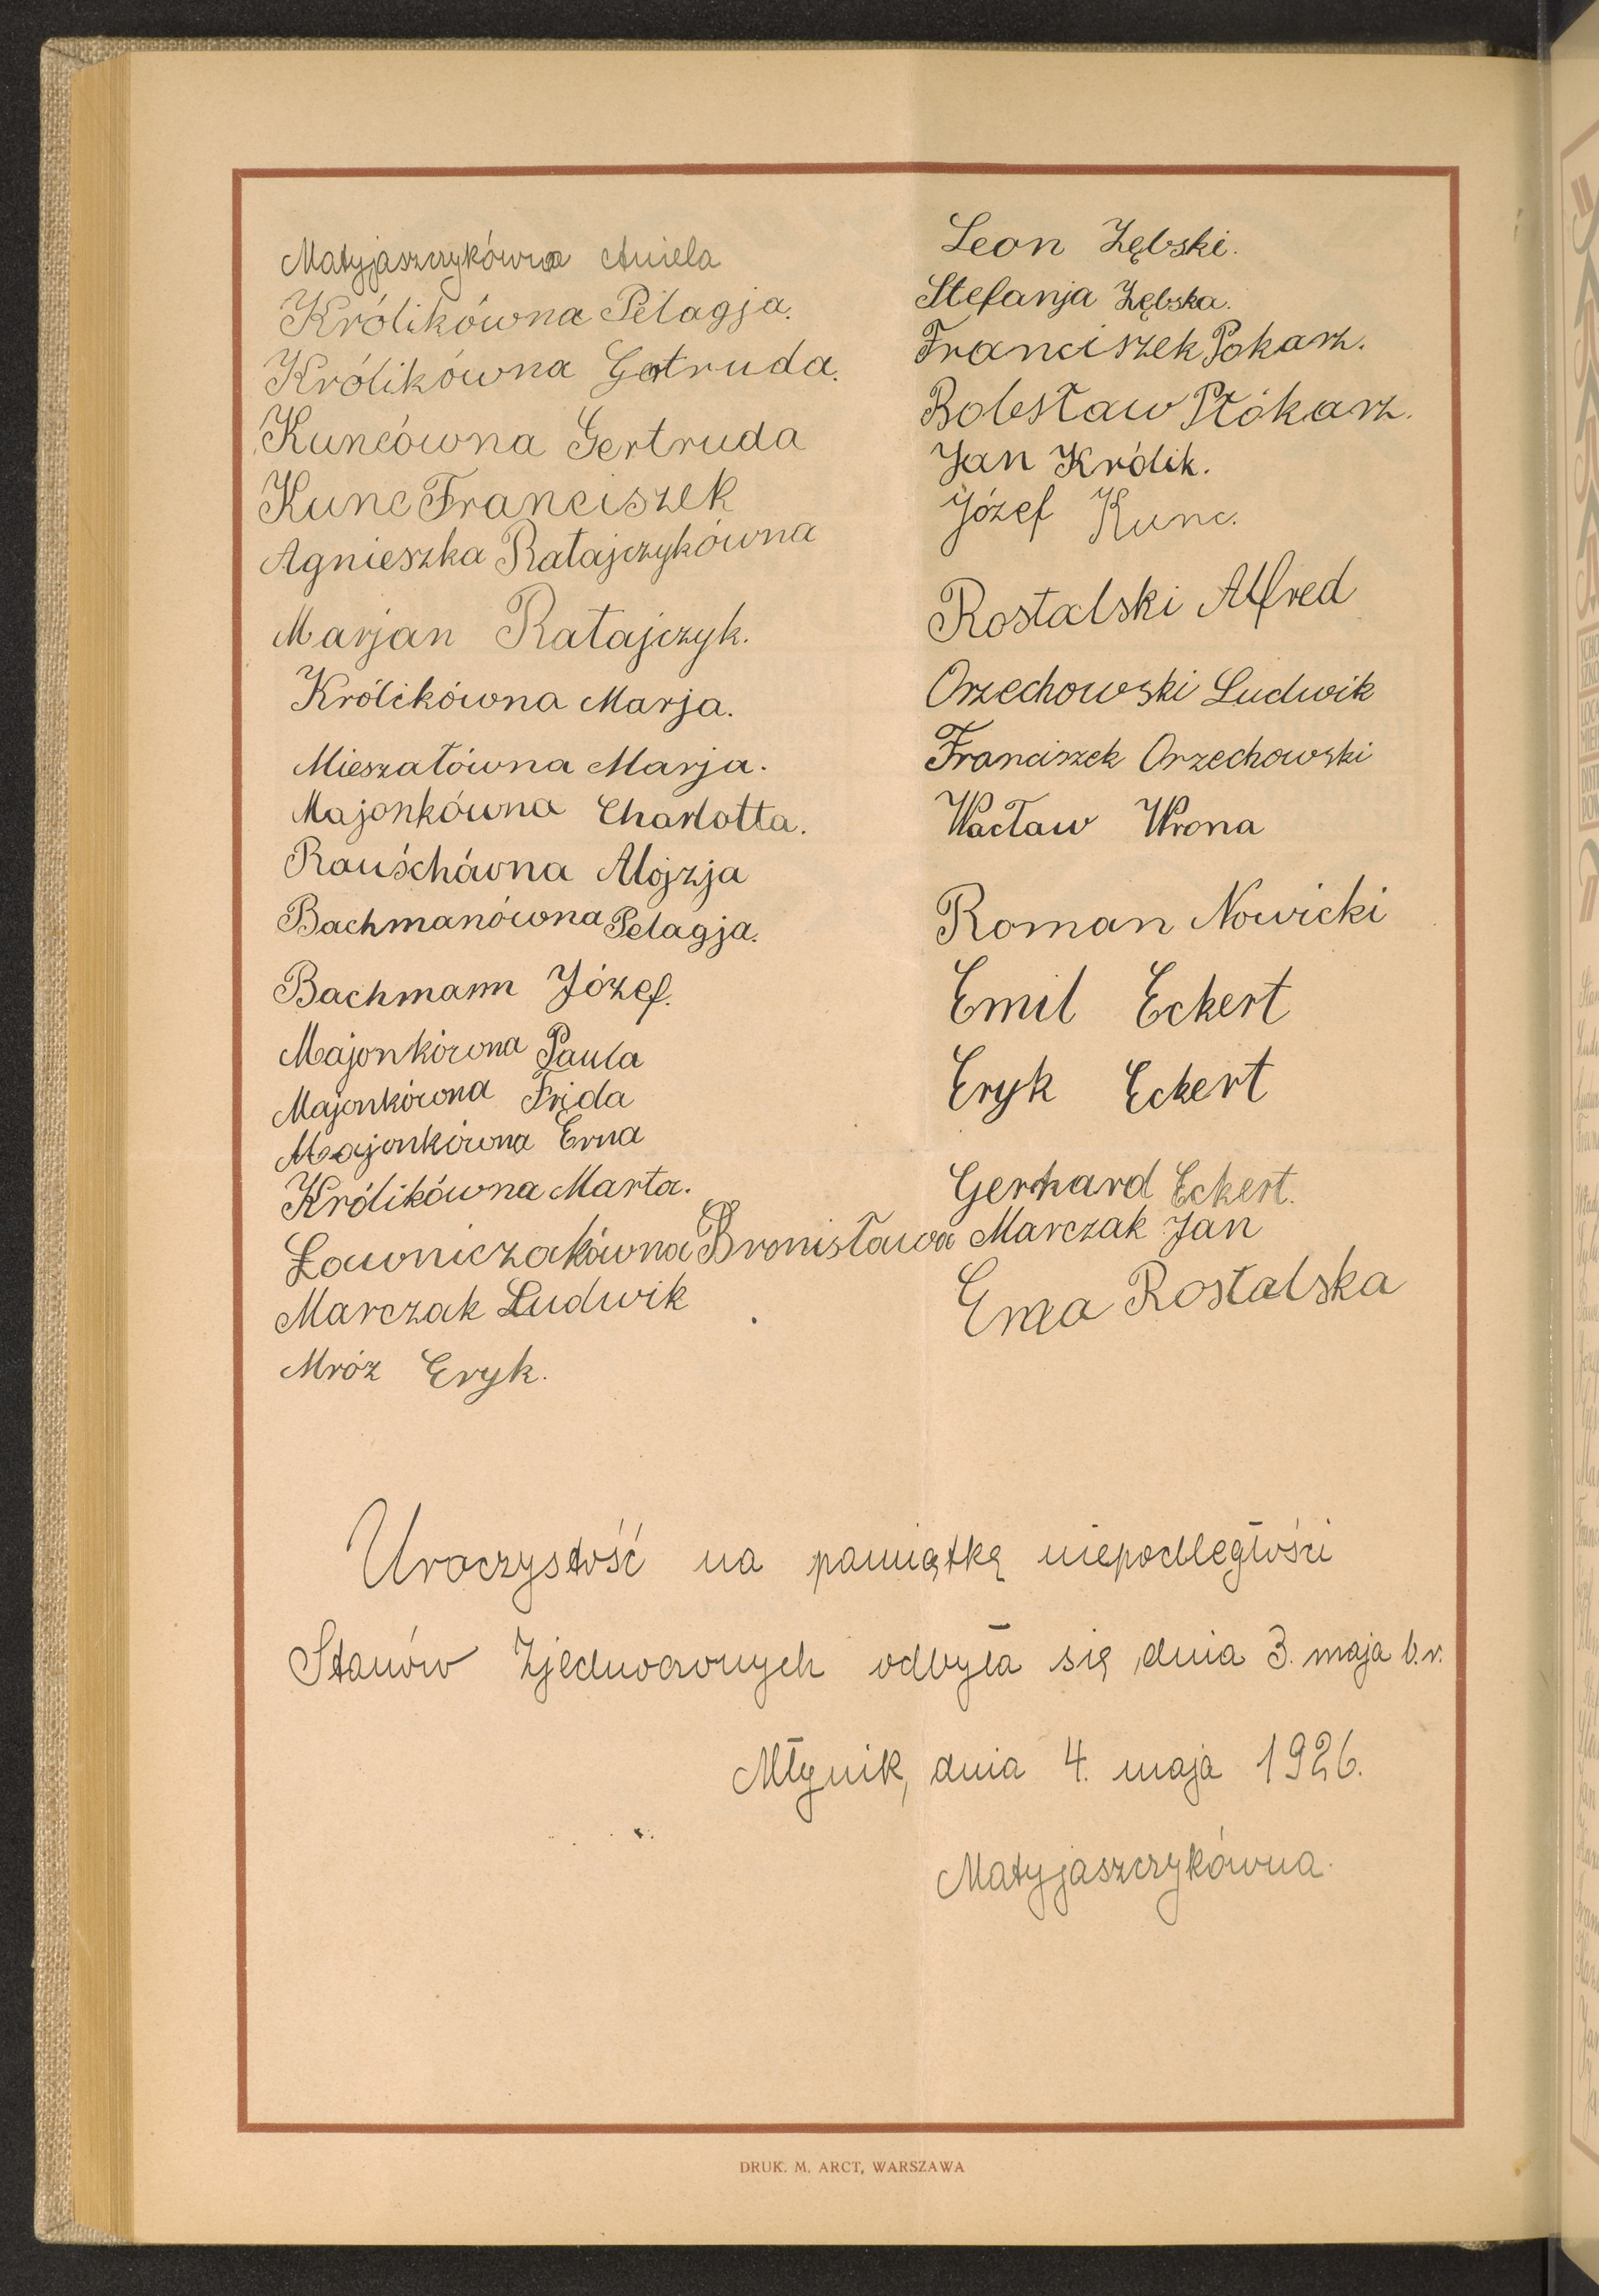 Matyjaszczykówna Aniela
Królikówna Pelagja.
Królikówna Gertruda.
Kuncówna Gertruda
Kunc Franciszek
Agnieszka Ratajczykówna
Marjan Ratajczyk.
Królikówna Marja.
Mieszałówna Marja.
Majonkówna Charlotta.
Rauśchówna Alojzja
Bachmanówna Pelagja.
Bachmann Józef.
Majonkówna Paula
Majonkówna Frida
Majonkówna Erna
Królikówna Marta.
Ławniczakówna Bronisława
Marczak Ludwik
Mróz Eryk.
Leon Zębski.
Stefanja Zębska.
Franciszek Pokarz.
Bolesław Ptókarz.
Jan Królik.
Józef Kunc.
Rostalski Alfred
Orzechowski Ludwik
Franciszek Orzechowski
Wacław Wrona
Roman Nowicki
Emil Eckert
Eryk Eckert
Gerhard Eckert.
Marczak Jan
Ema Rostalska
Uroczystość na pamiątkę niepodległości
Stanów Zjednoczonych odbyła się dnia 3. maja b.r.
Młynik, dnia 4. maja 1926.
Matyjaszczykówna.
DRUK. M. ARCT, WARSZAWA